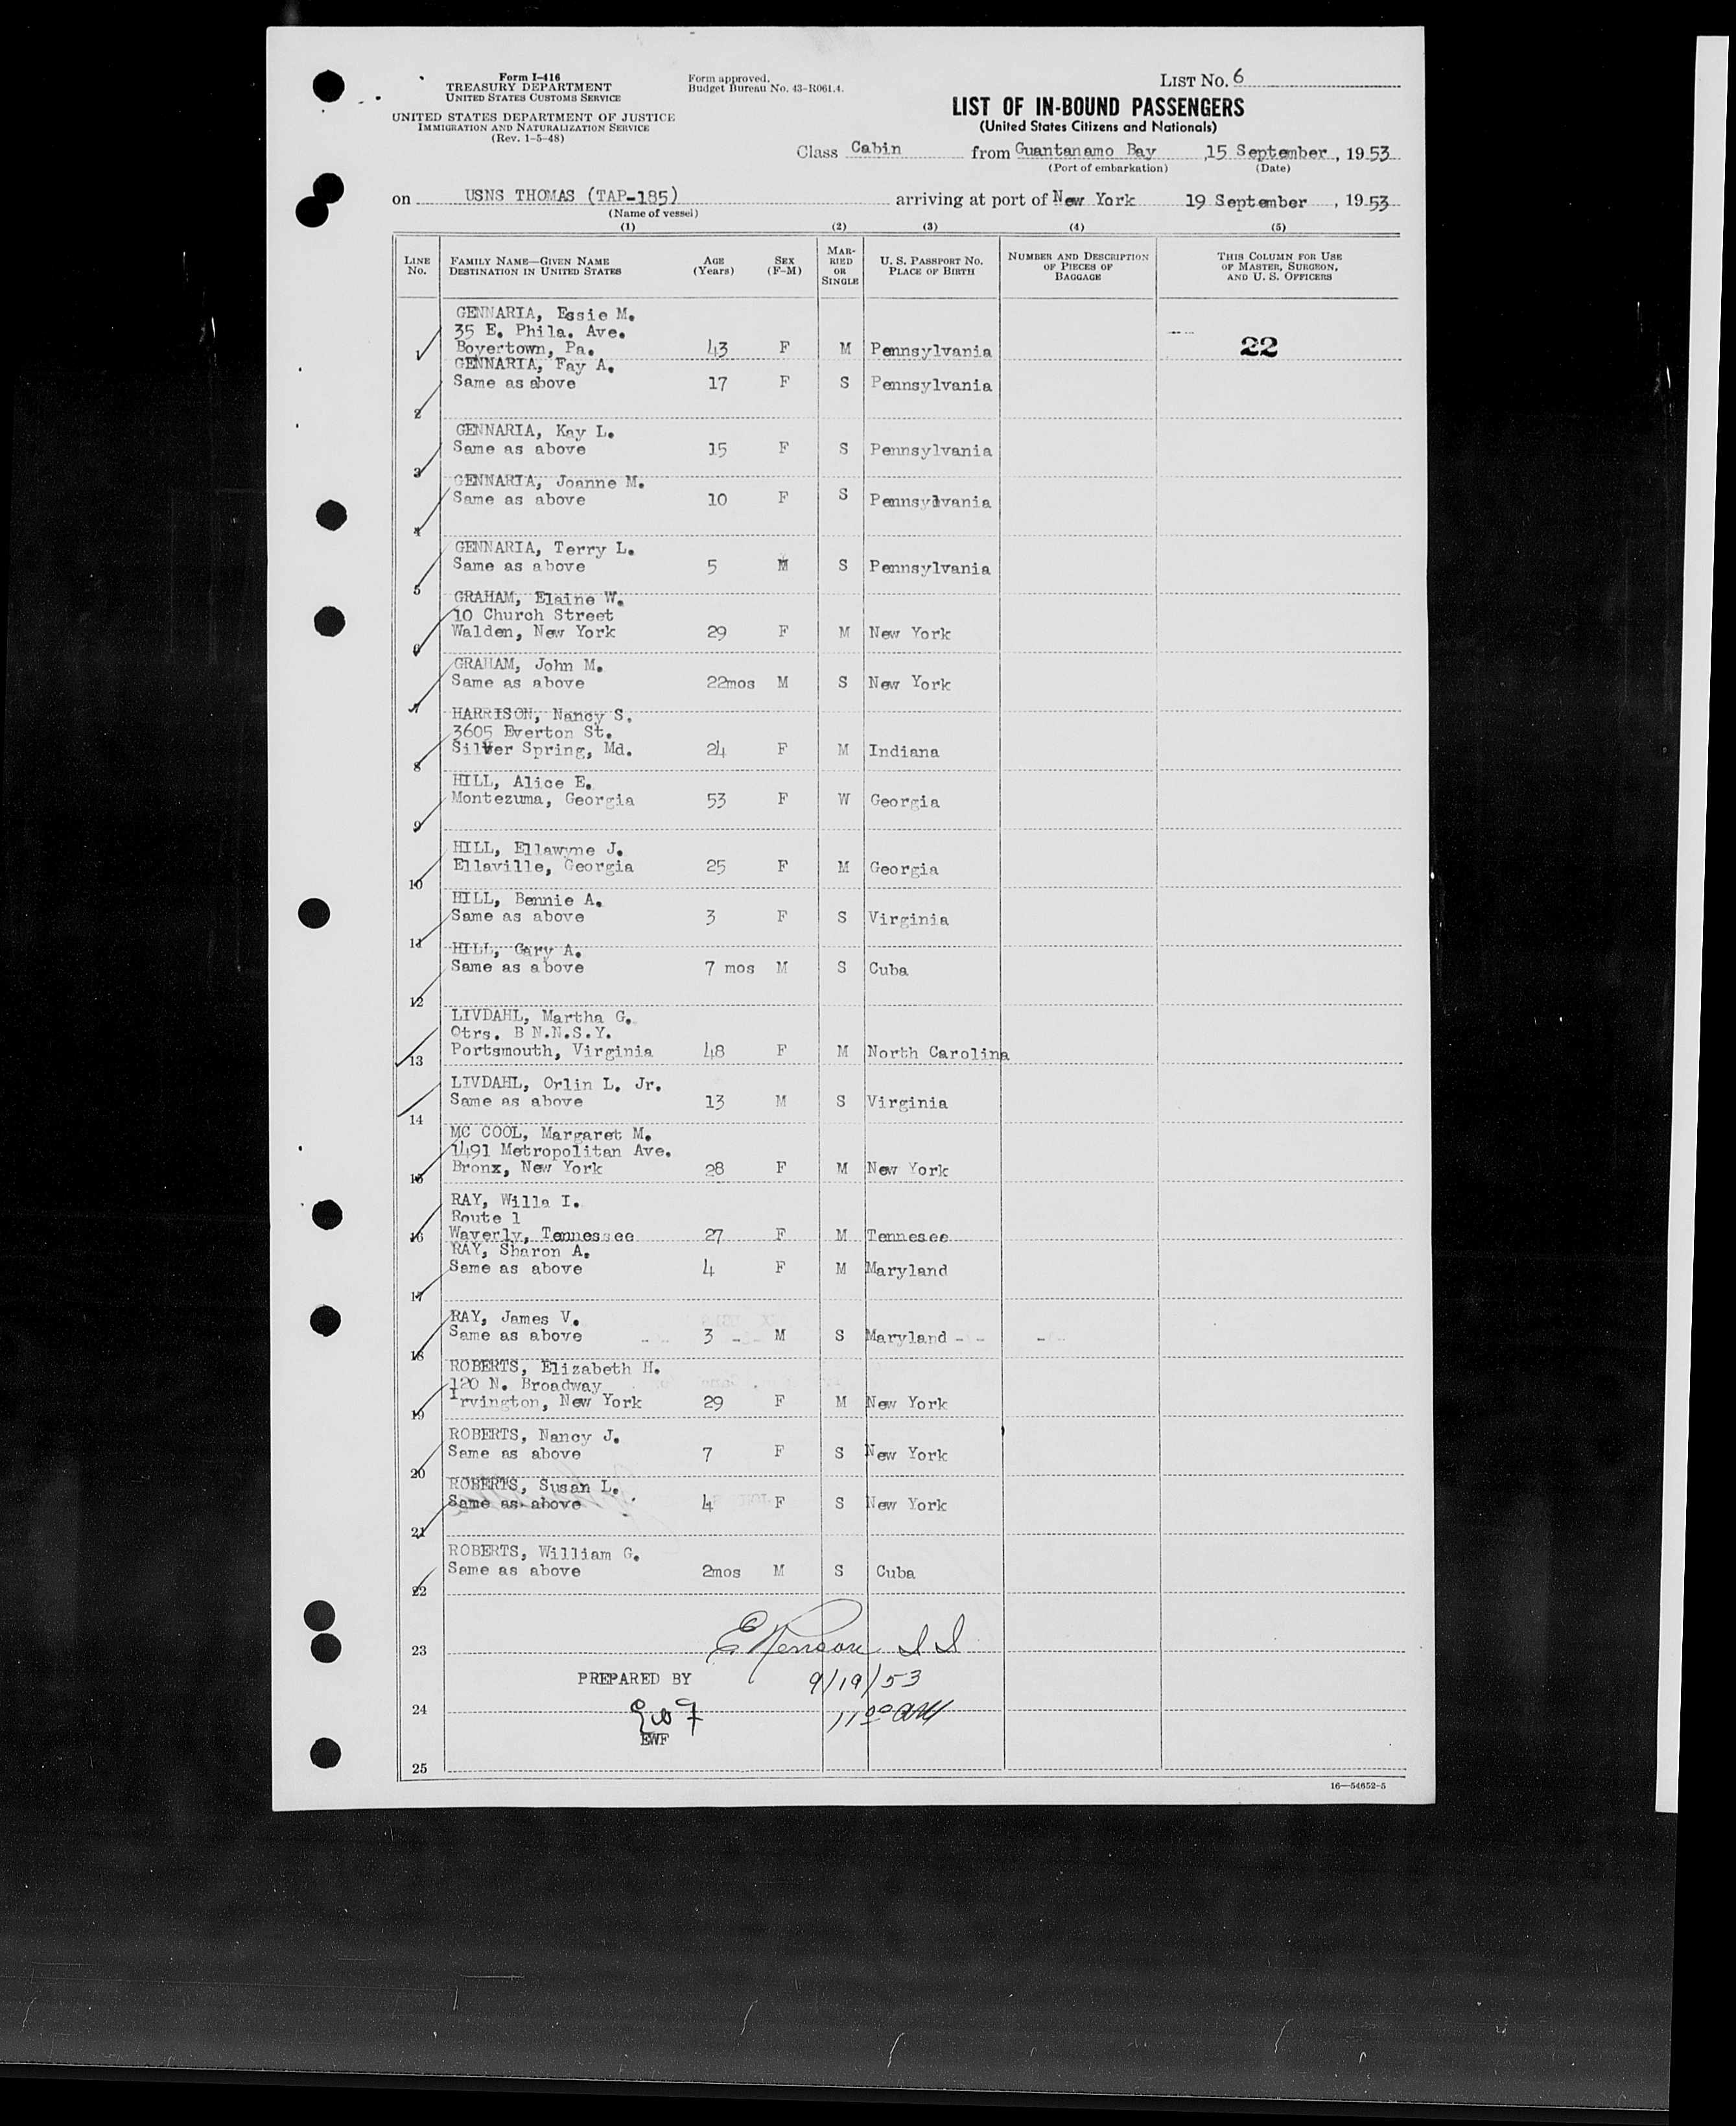 Form I-416
TREASURY DEPARTMENT
UNITED STATES CUSTOMS SERVICE
UNITED STATES DEPARTMENT OF JUSTICE
IMMIGRATION AND NATURALIZATION SERVICE
(Rev. 1-5-48)
Form approved.
Budget Bureau No. 43-R061.4.
LIST NO. 6
LIST OF IN-BOUND PASSENGERS
(United States Citizens and Nationals)
Class Cabin from Guantanamo Bay ,15 September , 1953
(Port of embarkation) (Date)
on USNS THOMAS (TAP-185) arriving at port of New York 19 September , 1953
(Name of vessel)
(1) (2) (3) (4) (5)
LINE NO. FAMILY NAME—GIVEN NAME DESTINATION IN UNITED STATES AGE (Years) SEX (F-M) MARRIED OR SINGLE U. S. PASSPORT NO. PLACE OF BIRTH NUMBER AND DESCRIPTION OF PIECES OF BAGGAGE THIS COLUMN FOR USE OF MASTER, SURGEON, AND U. S. OFFICERS
GENNARIA, Essie M.
35 E. Phila. Ave.
1 Boyertown, Pa. 43 F M Pennsylvania 22
GENNARIA, Fay A.
Same as above 17 F S Pennsylvania
2
GENNARIA, Kay L.
Same as above 15 F S Pennsylvania
3
GENNARIA, Joanne M.
Same as above 10 F S Pennsylvania
4
GENNARIA, Terry L.
Same as above 5 M S Pennsylvania
5
GRAHAM, Elaine W.
10 Church Street
Walden, New York 29 F M New York
6
GRAHAM, John M.
Same as above 22mos M S New York
7
HARRISON, Nancy S.
3605 Everton St.
Silver Spring, Md. 24 F M Indiana
8
HILL, Alice E.
Montezuma, Georgia 53 F W Georgia
9
HILL, Ellawyne J.
Ellaville, Georgia 25 F M Georgia
10
HILL, Bennie A.
Same as above 3 F S Virginia
11
HILL, Gary A.
Same as above 7 mos M S Cuba
12
LIVDAHL, Martha G.
Qtrs. B N.N.S.Y.
Portsmouth, Virginia 48 F M North Carolina
13
LIVDAHL, Orlin L. Jr.
Same as above 13 M S Virginia
14
MC COOL, Margaret M.
1491 Metropolitan Ave.
Bronx, New York 28 F M New York
15
RAY, Willa I.
Route 1
16 Waverly, Tennessee 27 F M Tennesee
RAY, Sharon A.
Same as above 4 F M Maryland
17
RAY, James V.
Same as above 3 M S Maryland
18
ROBERTS, Elizabeth H.
120 N. Broadway
Irvington, New York 29 F M New York
19
ROBERTS, Nancy J.
Same as above 7 F S New York
20
ROBERTS, Susan L.
Same as above 4 F S New York
21
ROBERTS, William G.
Same as above 2mos M S Cuba
22
23
PREPARED BY 9/19/53
24 11 00 AM
EWF
25
16—54652-5